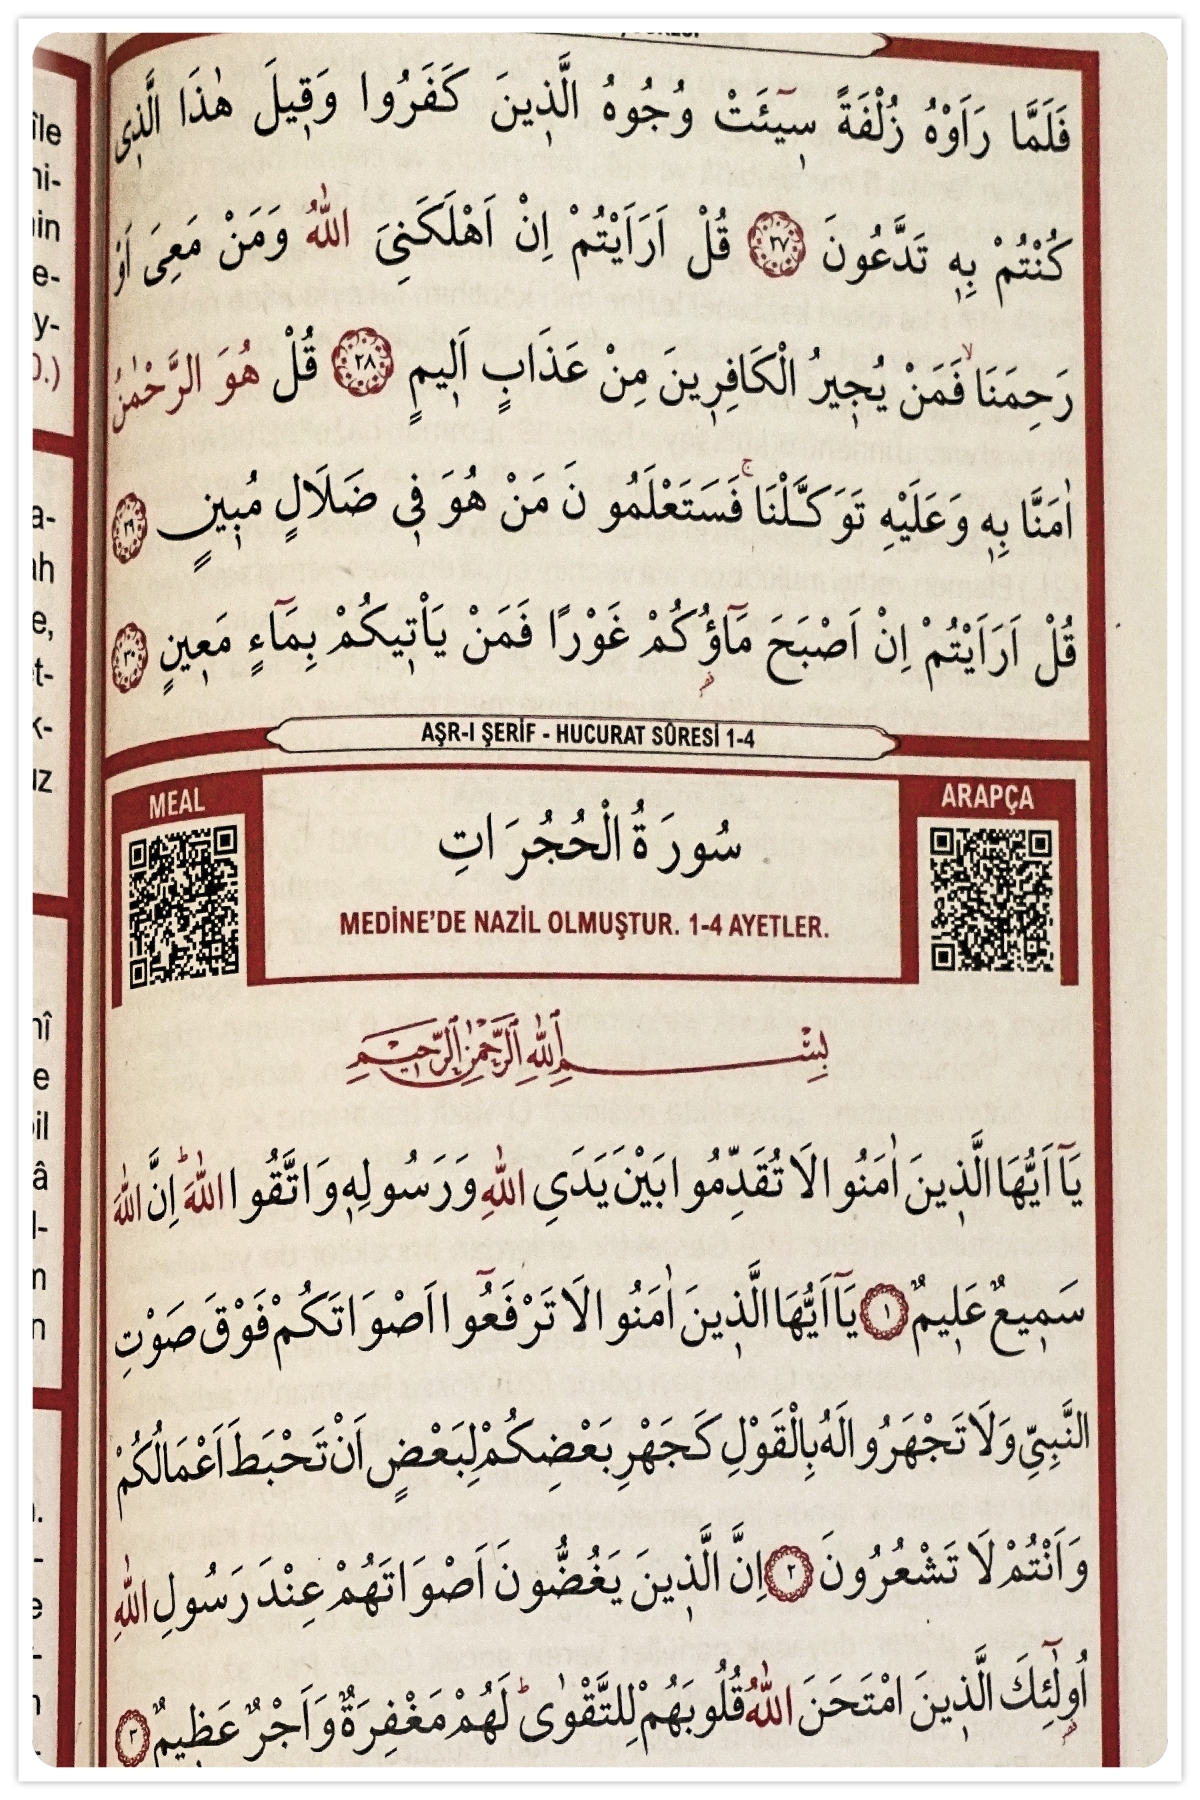 فَلَمَّا رَاَوْهُ زُلْفَةً سٖٓيئَتْ وُجُوهُ الَّذٖينَ كَفَرُوا وَقٖيلَ هٰذَا الَّذٖى
كُنْتُمْ بِهٖ تَدَّعُونَ ﴿٢٧﴾ قُلْ اَرَاَيْتُمْ اِنْ اَهْلَكَنِىَ اللّٰهُ وَمَنْ مَعِىَ اَوْ
رَحِمَنَاۙ فَمَنْ يُجٖيرُ الْكَافِرٖينَ مِنْ عَذَابٍ اَلٖيمٍ ﴿٢٨﴾ قُلْ هُوَ الرَّحْمٰنُ
اٰمَنَّا بِهٖ وَعَلَيْهِ تَوَكَّلْنَاۚ فَسَتَعْلَمُونَ مَنْ هُوَ فٖى ضَلَالٍ مُبٖينٍ ﴿٢٩﴾
قُلْ اَرَاَيْتُمْ اِنْ اَصْبَحَ مَٓاؤُ۬كُمْ غَوْرًا فَمَنْ يَاْتٖيكُمْ بِمَٓاءٍ مَعٖينٍ ﴿٣٠﴾
AŞR-I ŞERİF - HUCURAT SÛRESİ 1-4
MEAL
ARAPÇA
سُورَةُ الْحُجُرَاتِ
MEDİNE'DE NAZİL OLMUŞTUR. 1-4 AYETLER.
بِسْمِ اللّٰهِ الرَّحْمٰنِ الرَّحٖيمِ
يَٓا اَيُّهَا الَّذٖينَ اٰمَنُوا لَا تُقَدِّمُوا بَيْنَ يَدَىِ اللّٰهِ وَرَسُولِهٖ وَاتَّقُوا اللّٰهَؕ اِنَّ اللّٰهَ
سَمٖيعٌ عَلٖيمٌ ﴿١﴾ يَٓا اَيُّهَا الَّذٖينَ اٰمَنُوا لَا تَرْفَعُٓوا اَصْوَاتَكُمْ فَوْقَ صَوْتِ
النَّبِىِّ وَلَا تَجْهَرُوا لَهُ بِالْقَوْلِ كَجَهْرِ بَعْضِكُمْ لِبَعْضٍ اَنْ تَحْبَطَ اَعْمَالُكُمْ
وَاَنْتُمْ لَا تَشْعُرُونَ ﴿٢﴾ اِنَّ الَّذٖينَ يَغُضُّونَ اَصْوَاتَهُمْ عِنْدَ رَسُولِ اللّٰهِ
اُو۬لٰٓئِكَ الَّذٖينَ امْتَحَنَ اللّٰهُ قُلُوبَهُمْ لِلتَّقْوٰىؕ لَهُمْ مَغْفِرَةٌ وَاَجْرٌ عَظٖيمٌ ﴿٣﴾